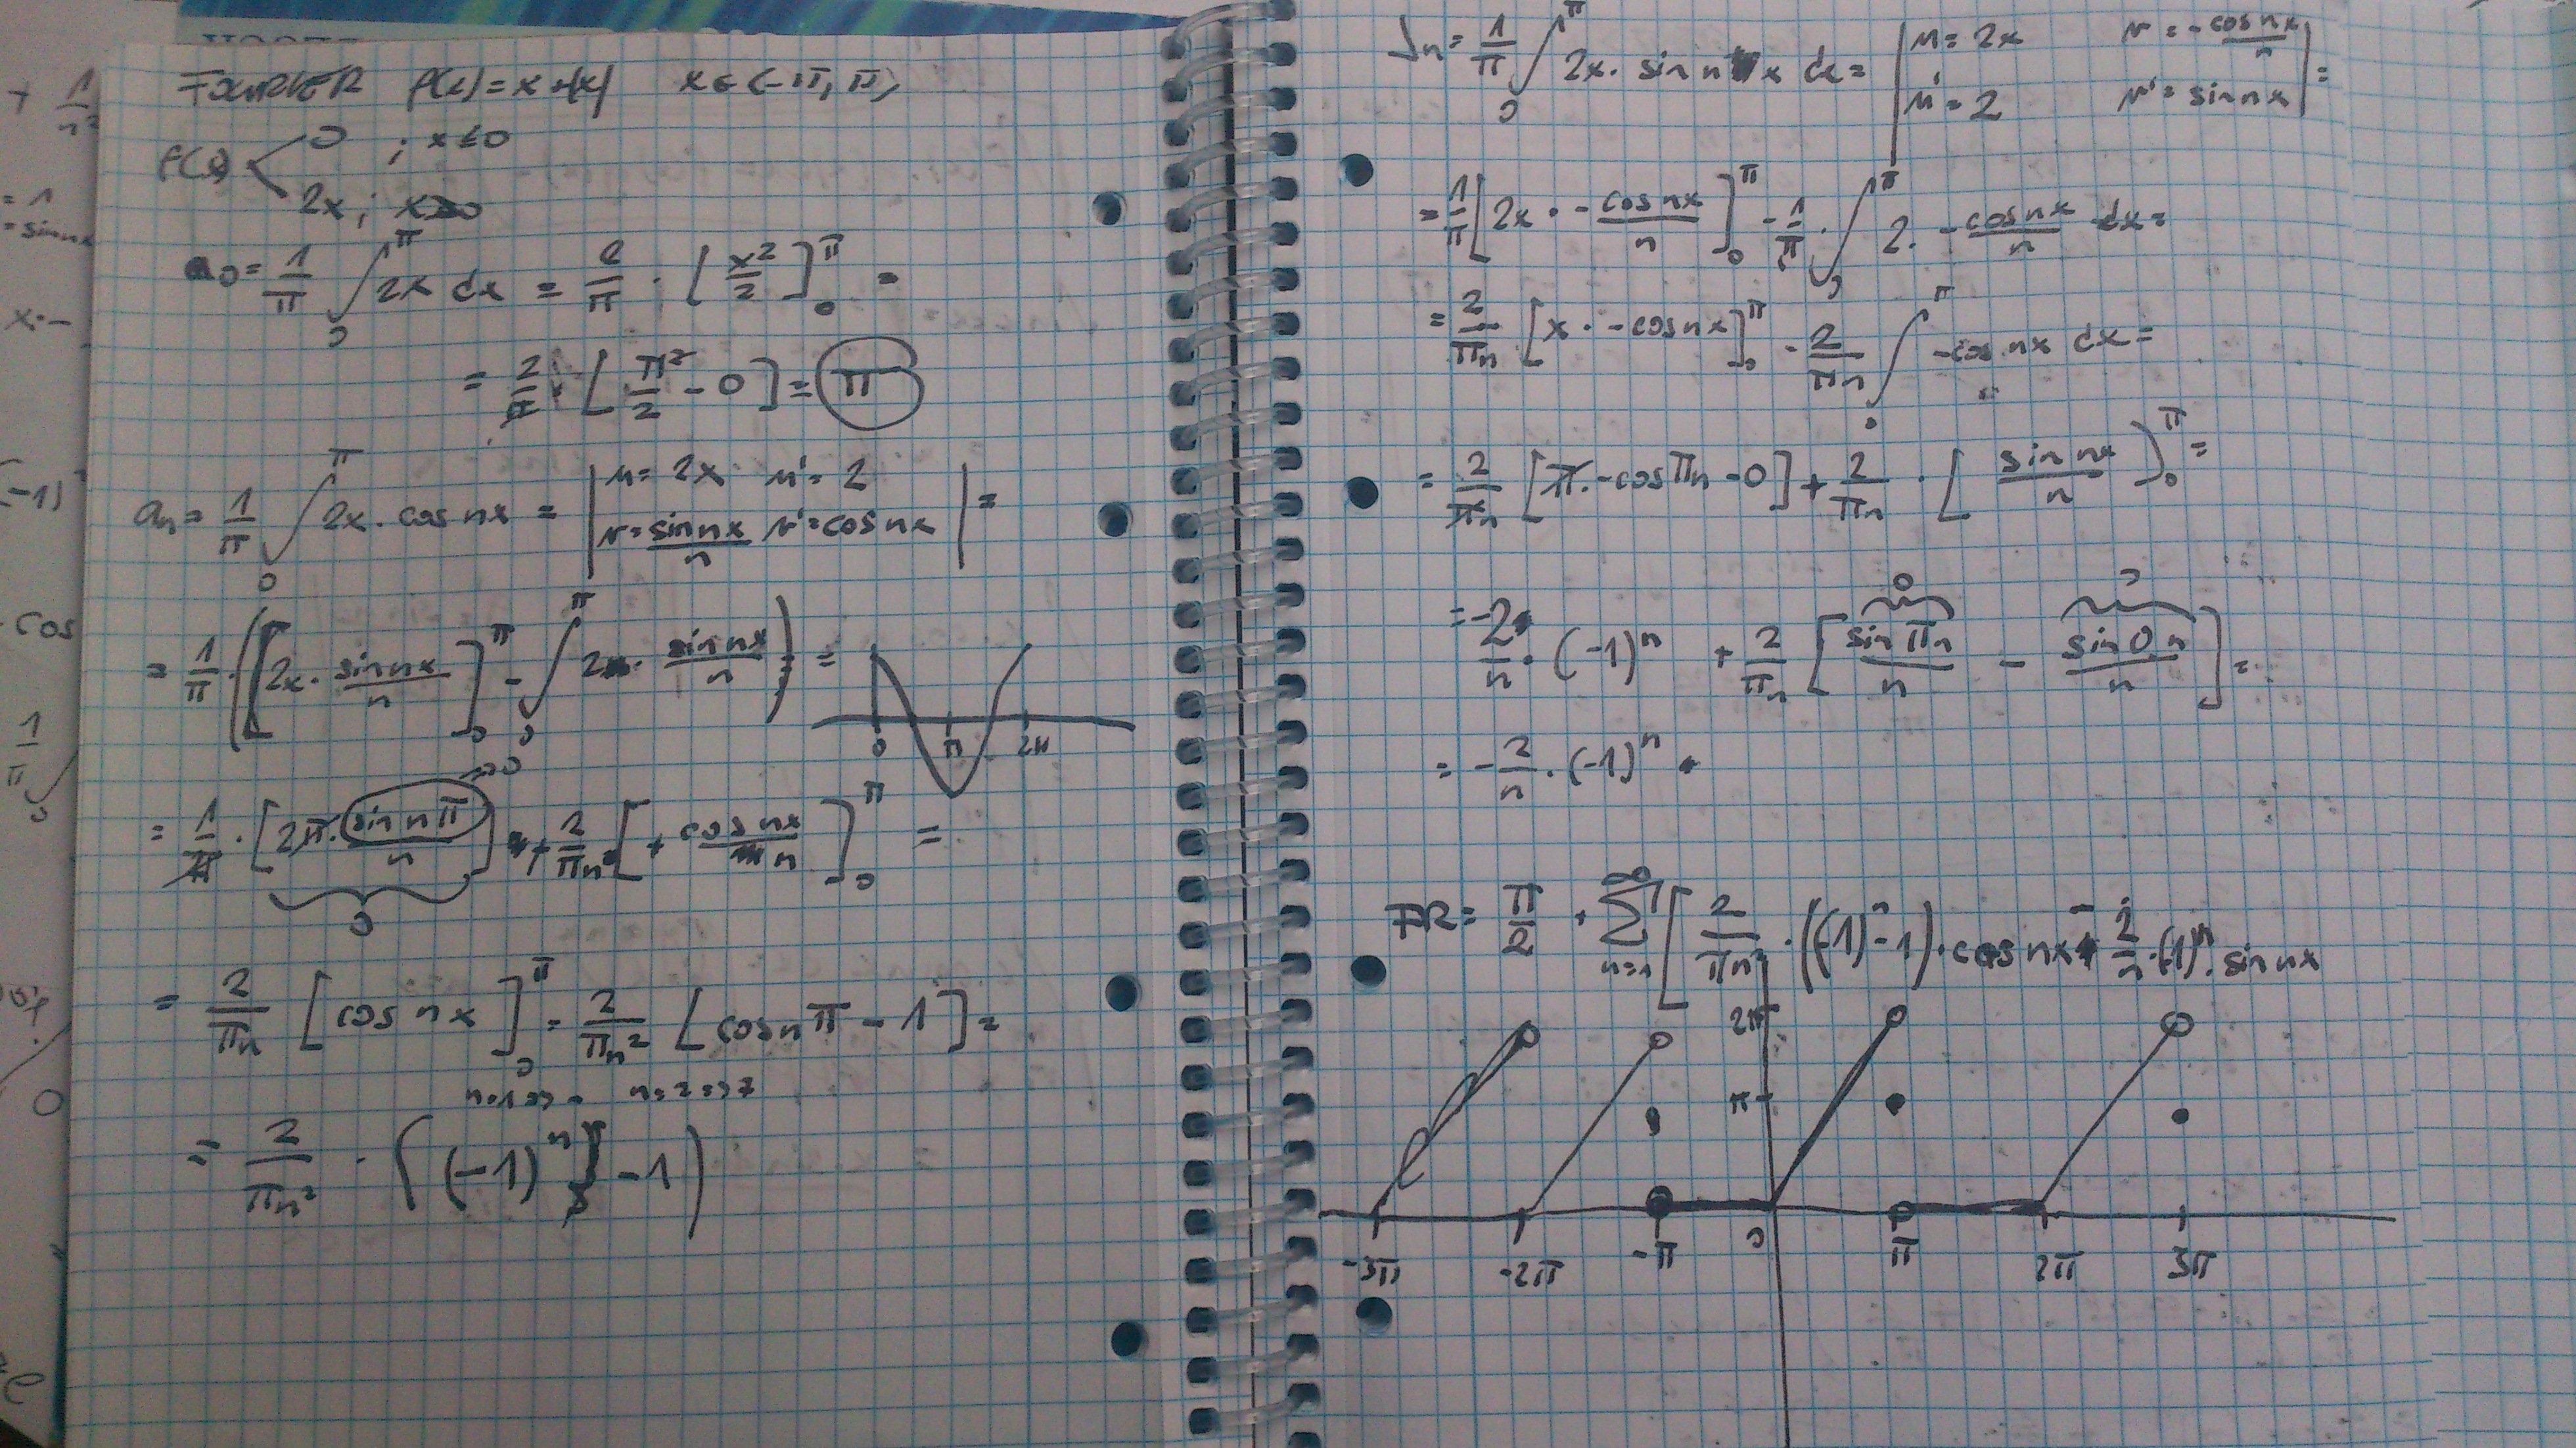 FOURIER f(x) = x + |x| x ∈ (-π, π)
f(x) < 0 ; x ≤ 0
2x ; x > 0
a₀ = 1/π ∫₀^π 2x dx = 2/π · [x²/2]₀^π =
= 2/π · [π²/2 - 0] = π
aₙ = 1/π ∫₀^π 2x · cos nx = | u = 2x u' = 2 | =
v = sin nx/n v' = cos nx
= 1/π · ([2x · sin nx/n]₀^π - ∫₀^π 2 · sin nx/n) =
0 π 2π
= 1/π · [2π · sin nπ/n] + 2/πn [+ cos nx/n]₀^π =
→0
0
= 2/πn [cos nx]₀^π = 2/πn² [cos nπ - 1] =
= 2/πn² · ((-1)ⁿ - 1)
bₙ = 1/π ∫₀^π 2x · sin nx dx = | u = 2x v = -cos nx/n | =
u' = 2 v' = sin nx
= 1/π [2x · -cos nx/n]₀^π - 1/π · ∫₀^π 2 · -cos nx/n dx =
= 2/πn [x · -cos nx]₀^π - 2/πn ∫₀^π -cos nx dx =
= 2/πn [π · -cos πn - 0] + 2/πn · [sin nx/n]₀^π =
0 0
= -2/n · (-1)ⁿ + 2/πn [sin πn/n - sin 0n/n] =
= -2/n · (-1)ⁿ
FR = π/2 + ∑ₙ₌₁^∞ [2/πn² · ((-1)ⁿ - 1) · cos nx - 2/n · (-1)ⁿ · sin nx
2π
π
-3π -2π -π 0 π 2π 3π